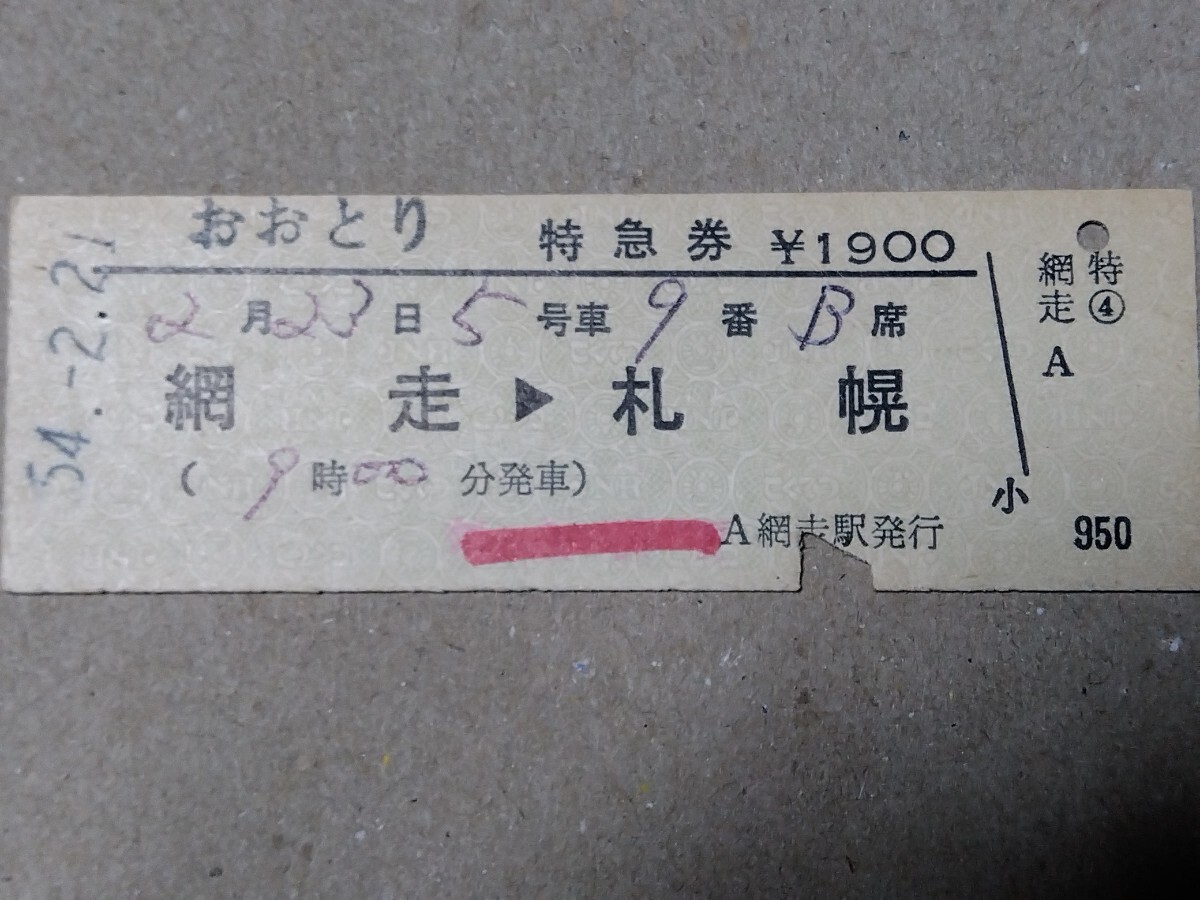 おおとり 特急券 ¥1900
2月23日5号車9番B席
網走▶札幌
(9時00分発車)
A網走駅発行
54.-2.21
小
特④
網走
A
950